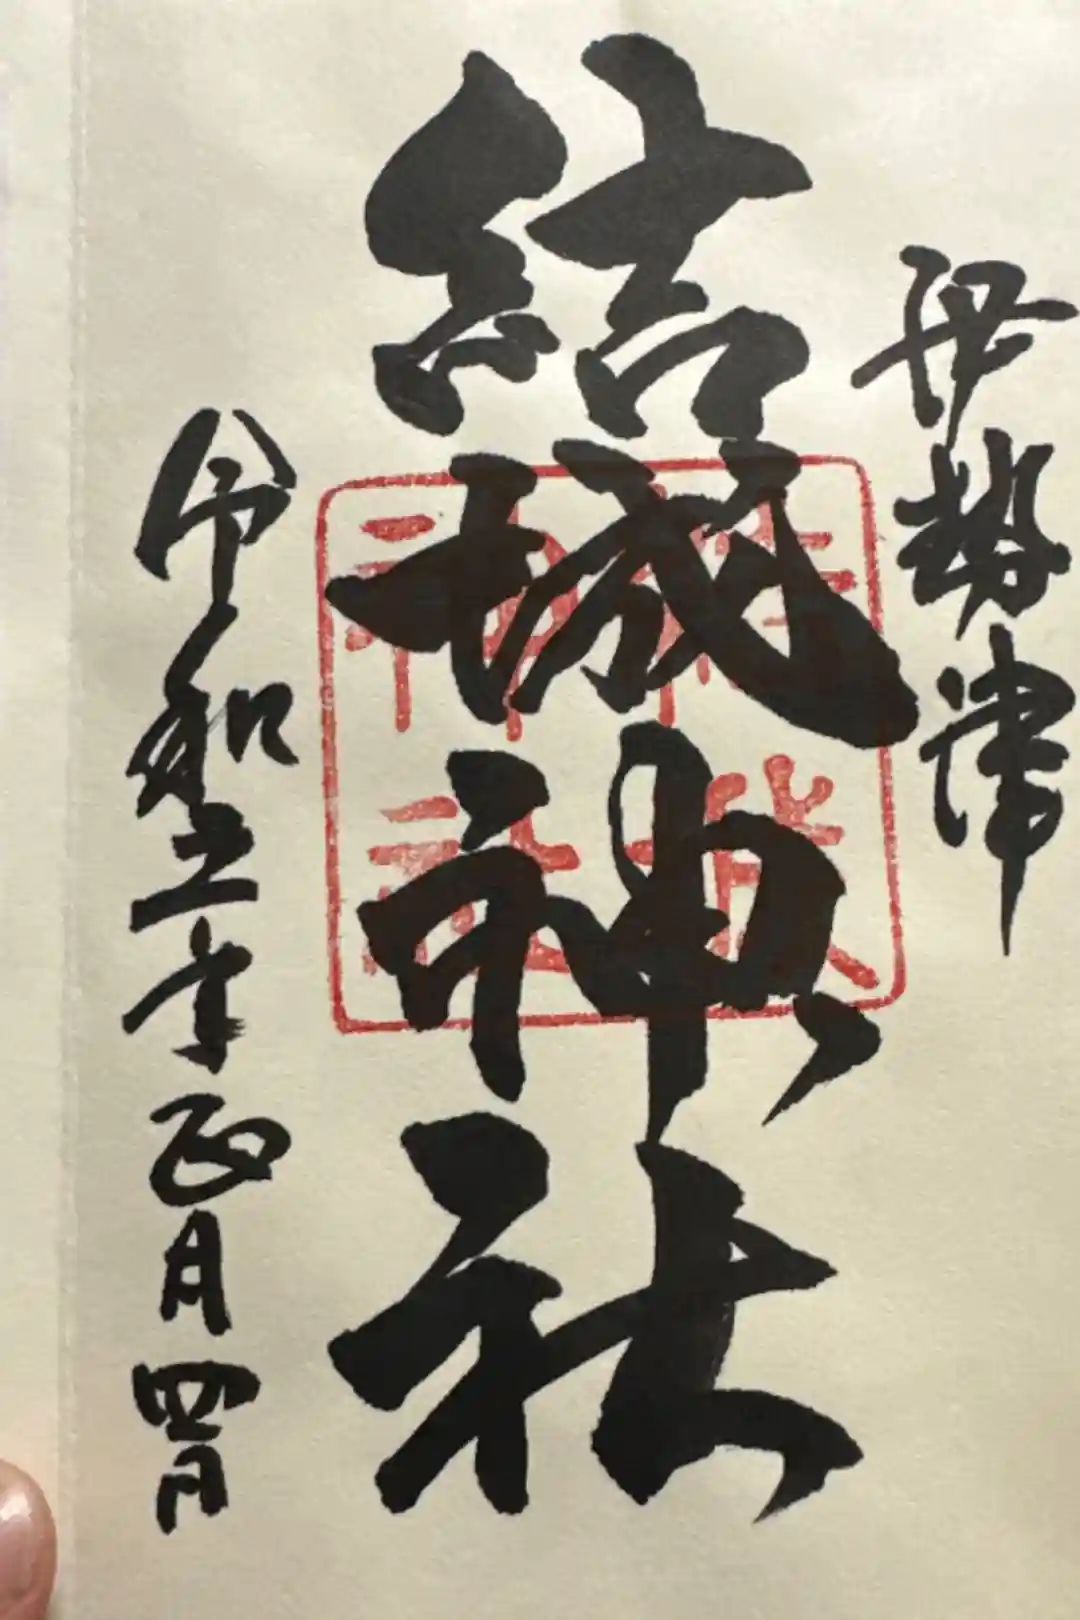 伊勢津
結城神社
結城
神社
令和五年正月四日